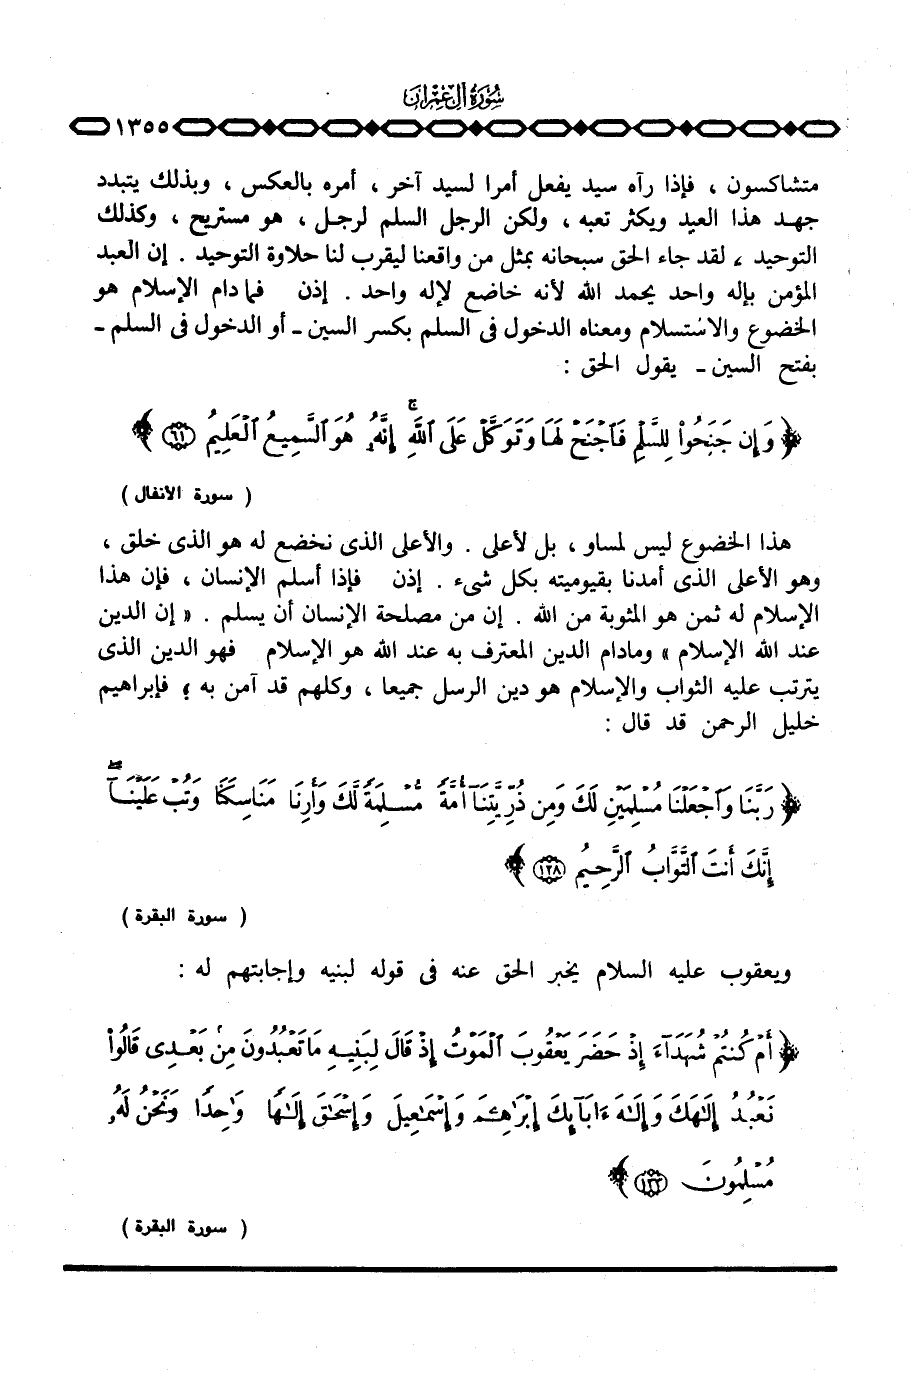 سورة آل عمران
١٣٥٥
متشاكسون ، فإذا رآه سيد يفعل أمرا لسيد آخر ، أمره بالعكس ، وبذلك يتبدد
جهد هذا العبد ويكثر تعبه ، ولكن الرجل السلم لرجل ، هو مستريح ، وكذلك
التوحيد ، لقد جاء الحق سبحانه بمثل من واقعنا ليقرب لنا حلاوة التوحيد . إن العبد
المؤمن بإله واحد يحمد الله لأنه خاضع لإله واحد . إذن فما دام الإسلام هو
الخضوع والاستسلام ومعناه الدخول فى السلم بكسر السين ـ أو الدخول فى السلم ـ
بفتح السين ـ يقول الحق :
﴿ وَإِن جَنَحُواْ لِلسَّلْمِ فَٱجْنَحْ لَهَا وَتَوَكَّلْ عَلَى ٱللَّهِ ۚ إِنَّهُۥ هُوَ ٱلسَّمِيعُ ٱلْعَلِيمُ ٦١ ﴾
( سورة الأنفال )
هذا الخضوع ليس لمساو ، بل لأعلى . والأعلى الذى نخضع له هو الذى خلق ،
وهو الأعلى الذى أمدنا بقيوميته بكل شىء . إذن فإذا أسلم الإنسان ، فإن هذا
الإسلام له ثمن هو المثوبة من الله . إن من مصلحة الإنسان أن يسلم . « إن الدين
عند الله الإسلام » ومادام الدين المعترف به عند الله هو الإسلام فهو الدين الذى
يترتب عليه الثواب والإسلام هو دين الرسل جميعا ، وكلهم قد آمن به ؛ فإبراهيم
خليل الرحمن قد قال :
﴿ رَبَّنَا وَٱجْعَلْنَا مُسْلِمَيْنِ لَكَ وَمِن ذُرِّيَّتِنَآ أُمَّةً مُّسْلِمَةً لَّكَ وَأَرِنَا مَنَاسِكَنَا وَتُبْ عَلَيْنَآ ۖ
إِنَّكَ أَنتَ ٱلتَّوَّابُ ٱلرَّحِيمُ ١٢٨ ﴾
( سورة البقرة )
ويعقوب عليه السلام يخبر الحق عنه فى قوله لبنيه وإجابتهم له :
﴿ أَمْ كُنتُمْ شُهَدَآءَ إِذْ حَضَرَ يَعْقُوبَ ٱلْمَوْتُ إِذْ قَالَ لِبَنِيهِ مَا تَعْبُدُونَ مِنۢ بَعْدِى قَالُواْ
نَعْبُدُ إِلَـٰهَكَ وَإِلَـٰهَ ءَابَآئِكَ إِبْرَٰهِـۧمَ وَإِسْمَـٰعِيلَ وَإِسْحَـٰقَ إِلَـٰهًا وَٰحِدًا وَنَحْنُ لَهُۥ
مُسْلِمُونَ ١٣٣ ﴾
( سورة البقرة )